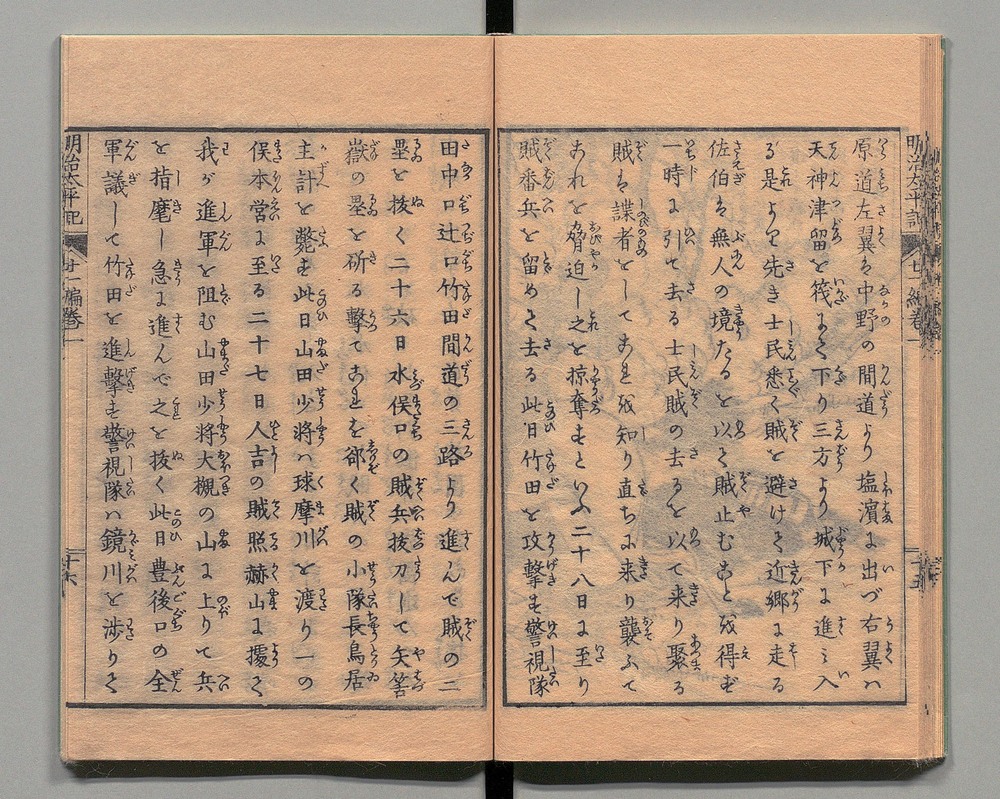 原道左翼は中野の間道より塩濱に出づ右翼ハ
天神津留を筏にて下り三方より城下に進ミ入
る是より先き士民悉く賊を避けて近郷に走る
佐伯は無人の境たるを以て賊止むことを得ず
一時に引て去る士民賊の去るを以て来り聚る
賊は諜者をしてこれを知り直ちに来り襲ふて
これを脅迫し之を掠奪すといふ二十八日に至り
賊番兵を留めて去る此日竹田を攻撃す警視隊
田中口辻口竹田間道の三路より進んで賊の二
塁を抜く二十六日水俣口の賊兵抜刀して矢筈
嶽の塁を斫る撃てこれを郤く賊の小隊長鳥居
主計を斃す此日山田少将ハ球摩川を渡り一の
俣本営に至る二十七日人吉の賊照赫山に據て
我が進軍を阻む山田少将大槻の山に上りて兵
を指麾し急に進んで之を抜く此日豊後口の全
軍議して竹田を進撃す警視隊ハ鏡川を渉りて
明治太平記
廿一編巻一
十六